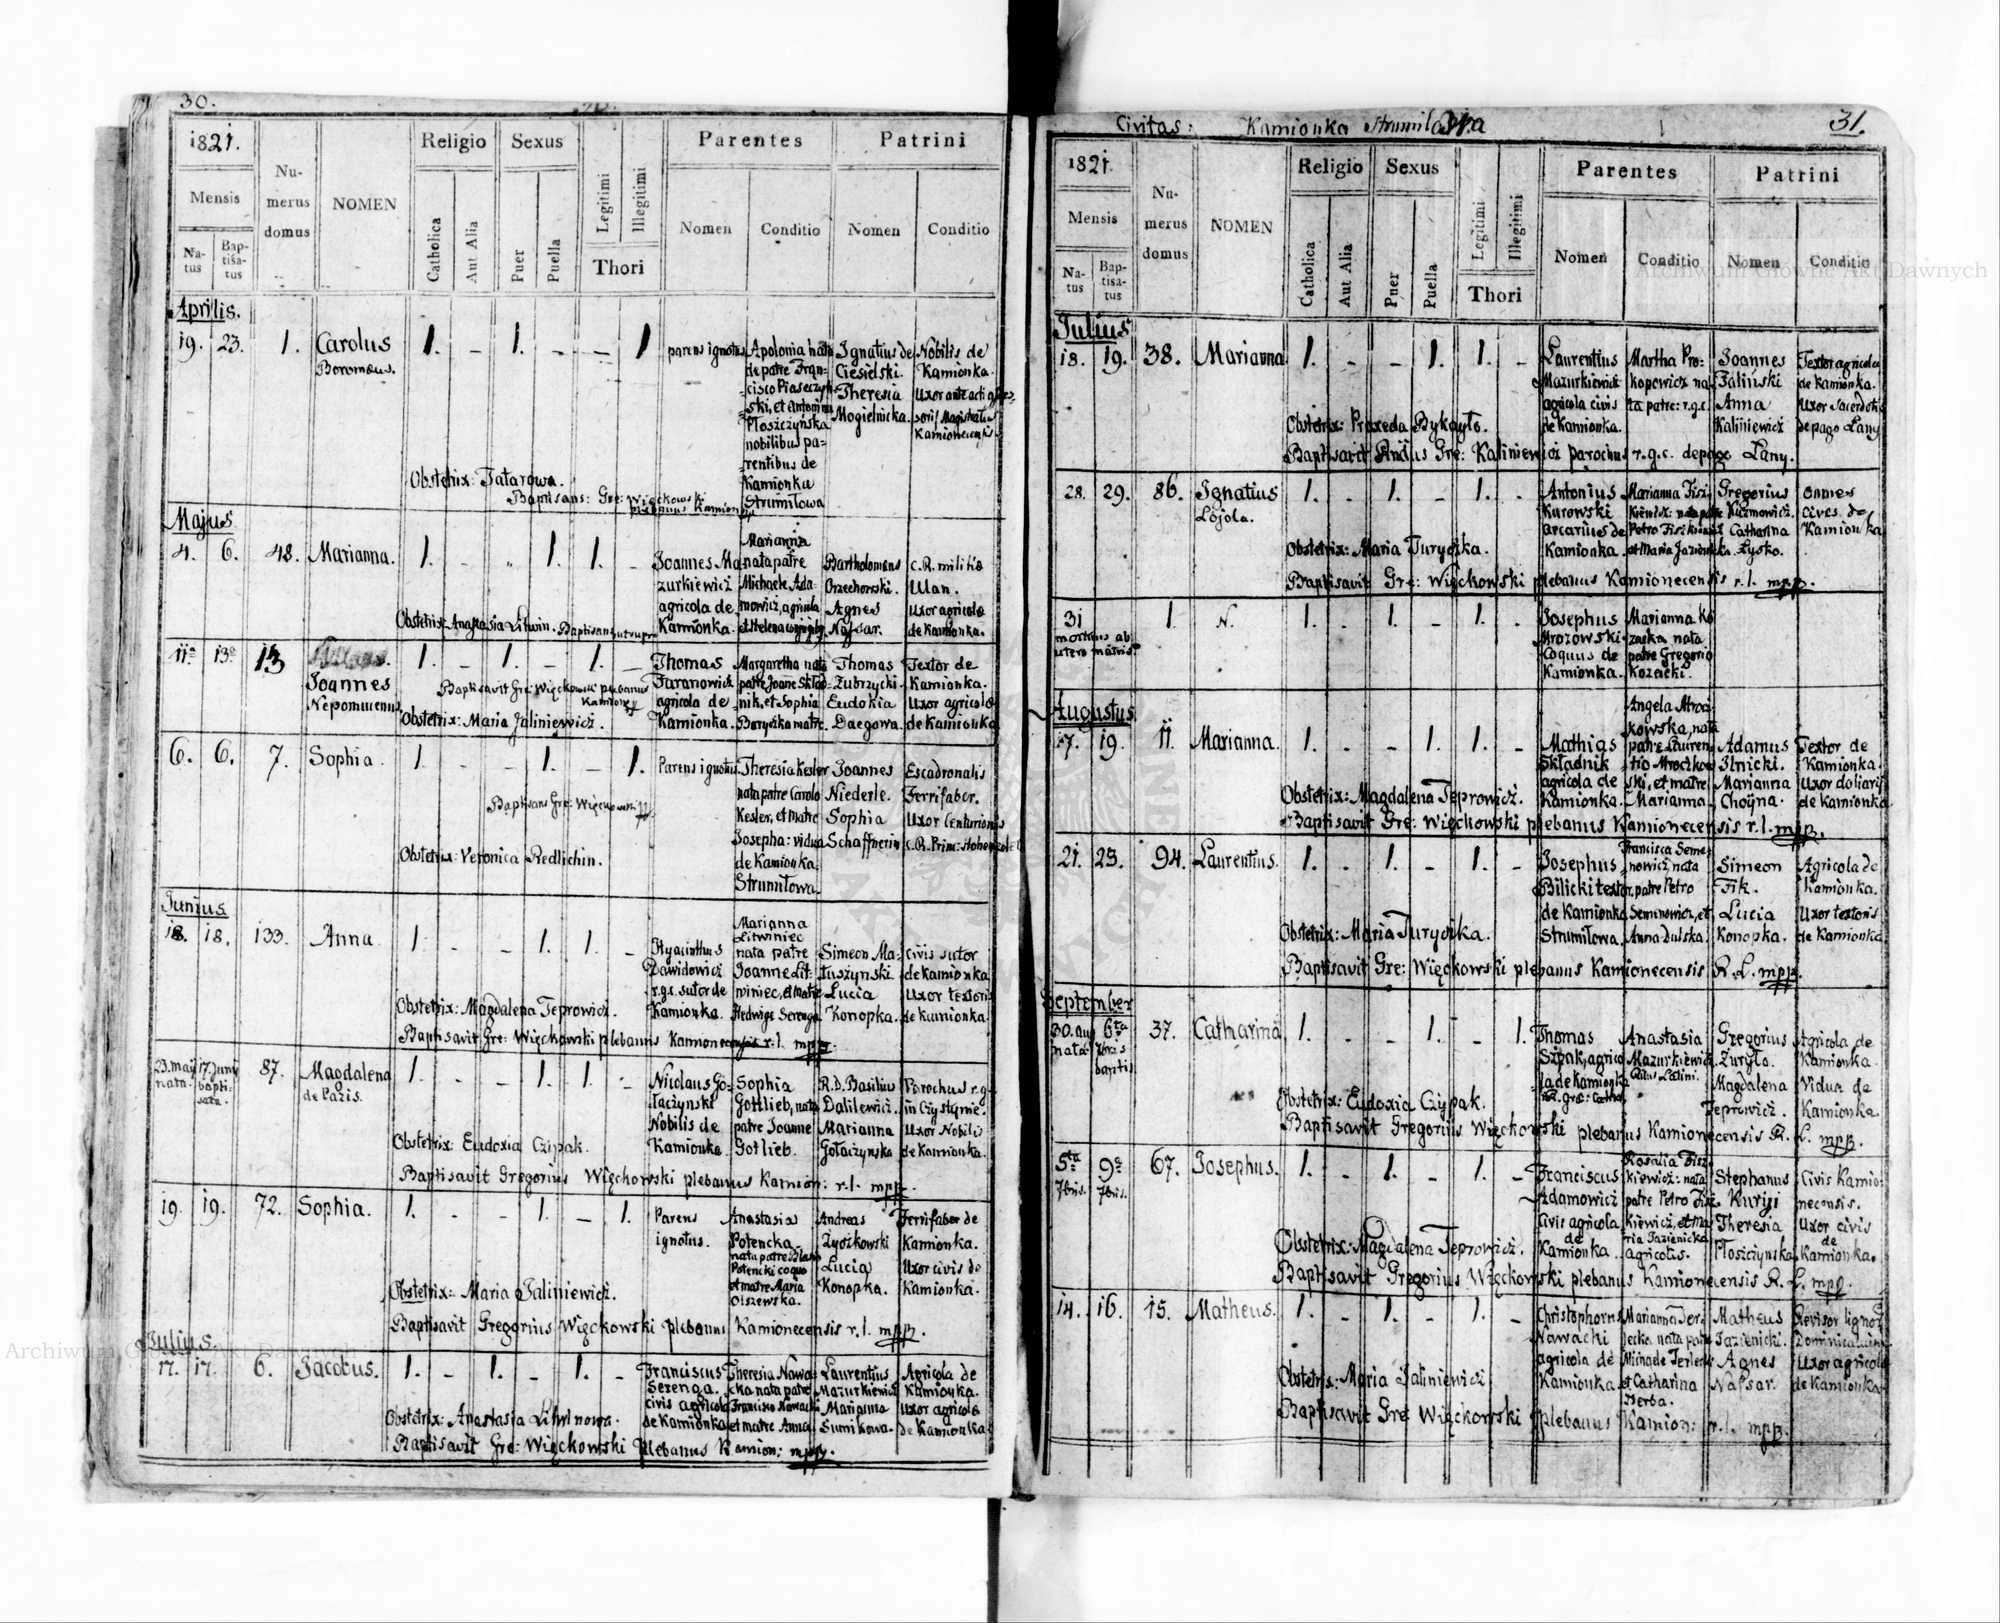 30.
1821.
Mensis
Na-
tus
Bap-
tisa-
tus
Nu-
merus
domus
NOMEN
Religio
Catholica
Aut Alia
Sexus
Puer
Puella
Legitimi
Illegitimi
Thori
Parentes
Nomen
Conditio
Patrini
Nomen
Conditio
Aprilis.
19. 23. 1. Carolus 1. - 1. - - 1
Boromæus.
parens ignotus
Apolonia nata
de patre Fran-
cisco Piaseczyń-
ski, et Antonina
Płoszczyńska
nobilibus pa-
rentibus de
Kamionka
Strumiłowa
Ignatius de
Ciesielski.
Theresia
Mogielnicka.
Nobilis de
Kamionka.
Uxor ante acti
Magistratus
Kamionecensis
Obstetrix: Tatarowa.
Baptisans: Gre: Więckowski
plebanus Kamion
Majus.
4. 6. 48. Marianna. 1. - - 1. 1. -
Joannes Ma-
zurkiewicz
agricola de
Kamionka.
Marianna
nata patre
Michaele Ada-
mowicz, agricola
et Helena
Bartholomeus
Orzechowski.
Agnes
Nafsar.
c. R. militiæ
Ulan.
Uxor agricolæ
de Kamionka.
Obstetrix: Anastasia Litwin. Baptisans ut supra
11. 13. 13 Joannes 1. - 1. - 1. -
Nepomucenus
Thomas
Turanowicz
agricola de
Kamionka.
Margaretha nata
patre Joanne Skład-
nik, et Sophia
Boryczka matre.
Thomas
Zubrzycki.
Eudokia
Daegowa.
Textor de
Kamionka.
Uxor agricolæ
de Kamionka
Baptisavit Gre: Więckowski plebanus
Kamionec
Obstetrix: Maria Jaliniewicz.
6. 6. 7. Sophia. 1. - - 1. - 1.
Parens ignotus.
Theresia Kesler
nata patre Carolo
Kesler, et matre
Josepha: vidua
de Kamionka
Strumiłowa.
Joannes
Niederle.
Sophia
Schaffnerin
Escadronalis
Ferrifaber.
Uxor Centurionis
c. R. Prim: Hohenzoler
Baptisans Gre: Więckowski
Obstetrix: Veronica Redlichin.
Junius
18. 18. 133. Anna. 1. - - 1. 1. -
Hyacinthus
Dawidowicz
r.g.c. sutor de
Kamionka.
Marianna
Litwiniec
nata patre
Joanne Lit-
winiec, et matre
Hedwige Serenga
Simeon Ma-
tuszynski.
Lucia
Konopka.
Civis sutor
de Kamionka
Uxor textoris
de Kamionka.
Obstetrix: Magdalena Teprowicz.
Baptisavit Gre: Więckowski plebanus Kamionecensis r.l. mpp.
23. may
nata.
17. Juny
bapti-
sata.
87. Magdalena 1. - - 1. 1. -
de Pazis.
Nicolaus Go-
łaczynski
Nobilis de
Kamionka.
Sophia
Gottlieb, nata
patre Joanne
Gotlieb.
R. D. Basilius
Dalilewicz.
Marianna
Gołaczynska
Parochus r.g.
in Czystynie.
Uxor Nobilis
de Kamionka.
Obstetrix: Eudoxia Czipak.
Baptisavit Gregorius Więckowski plebanus Kamion: r.l. mpp.
19. 19. 72. Sophia. 1. - - 1. - 1.
Parens
ignotus.
Anastasia
Potencka
nata patre Blasio
Potencki coquo
et matre Maria
Olszewska.
Andreas
Zyozkowski
Lucia
Konopka.
Ferrifaber de
Kamionka.
Uxor civis de
Kamionka.
Obstetrix: Maria Jaliniewicz.
Baptisavit Gregorius Więckowski plebanus Kamionecensis r.l. mpp.
Julius.
17. 17. 6. Jacobus. 1. - 1. - 1. -
Franciscus
Serenga.
civis agricola
de Kamionka
Theresia Nawa-
cka nata patre
Francisco Nawacki
et matre Anna
Laurentius
Mazurkiewicz
Marianna
Sumikowa.
Agricola de
Kamionka.
Uxor agricolæ
de Kamionka
Obstetrix: Anastasia Litwinowa.
Baptisavit Gre: Więckowski plebanus Kamion: mpp.
Civitas: Kamionka Strumiłowa
31.
1821.
Mensis
Na-
tus
Bap-
tisa-
tus
Nu-
merus
domus
NOMEN
Religio
Catholica
Aut Alia
Sexus
Puer
Puella
Legitimi
Illegitimi
Thori
Parentes
Nomen
Conditio
Patrini
Nomen
Conditio
Julius
18. 19. 38. Marianna 1. - - 1. 1. -
Laurentius
Mazurkiewicz
agricola civis
de Kamionka.
Martha Pro-
kopowicz na-
ta patre: r.g.c.
Joannes
Jaliński
Anna
Kaliniewicz
Textor agricola
de Kamionka.
Uxor Sacerdotis
de pago Łany
Obstetrix: Praxeda Bykayło.
Baptisavit Gre: Kaliniewicz parochus r.g.c. de pago Łany.
28. 29. 86. Ignatius 1. - 1. - 1. -
Lojola.
Antonius
Kurowski
arcarius de
Kamionka.
Marianna Fisz-
kiewicz: nata patre
Petro Fiszkiewicz
et Maria
Gregorius
Kuzmowicz.
Catharina
Łysko.
omnes
cives de
Kamionka
Obstetrix: Maria Juryczka.
Baptisavit Gre: Więckowski plebanus Kamionecensis r.l. mpp.
31
mortuus ab
utero matris
1. N. 1. - 1. - 1. -
Josephus
Mrozowski
Coquus de
Kamionka.
Marianna Ko-
zacka nata
patre Gregorio
Kozacki.
Augustus
17. 19. 11. Marianna. 1. - - 1. 1. -
Mathias
Składnik
agricola de
Kamionka.
Angela Mrocz-
kowska, nata
patre Lauren-
tio Mroczkow-
ski, et matre
Marianna.
Adamus
Ilnicki.
Marianna
Choyna.
Textor de
Kamionka.
Uxor doliarij
de Kamionka.
Obstetrix: Magdalena Teprowicz.
Baptisavit Gre: Więckowski plebanus Kamionecensis r.l. mpp.
21. 23. 94. Laurentius. 1. - 1. - 1. -
Josephus
Bilicki textor
de Kamionka
Strumiłowa.
Francisca Seme-
nowicz, nata
patre Petro
Semenowicz, et
Anna Dulska.
Simeon
Fik.
Lucia
Konopka.
Agricola de
Kamionka.
Uxor textoris
de Kamionka
Obstetrix: Maria Juryczka.
Baptisavit Gre: Więckowski plebanus Kamionecensis R.L. mpp.
September
30. aug
nata
6ta
7bris
baptis
37. Catharina 1. - - 1. - 1.
Thomas
Szpak, agrico-
la de Kamionka
R. Græ: Catho.
Anastasia
Mazurkiewicz.
Ritus Latini.
Gregorius
Zuryło.
Magdalena
Teprowicz.
Agricola de
Kamionka.
Vidua de
Kamionka
Obstetrix: Eudoxia Czypak.
Baptisavit Gregorius Więckowski plebanus Kamionecensis R. L. mpp.
5ta
7bris.
9a
7bris.
67. Josephus. 1. - 1. - 1. -
Franciscus
Adamowicz
Civis agricola
de
Kamionka.
Rosalia Fisz-
kiewicz: nata
patre Petro Fisz-
kiewicz, et Ma-
ria Jazienicka
agricolis.
Stephanus
Kuryj
Theresia
Płoszczynska
Civis Kamio-
necensis.
Uxor civis
de
Kamionka.
Obstetrix: Magdalena Teprowicz.
Baptisavit Gregorius Więckowski plebanus Kamionecensis R. L. mpp.
14. 16. 15. Matheus. 1. - 1. - 1. -
Christophorus
Nawacki
agricola de
Kamionka
Marianna Ter-
lecka nata patre
Michaele Terlecki
et Catharina
Berba.
Matheus
Jazienicki.
Agnes
Nafsar.
Revisor lignor
Uxor agricolæ
de Kamionka
Obstetrix: Maria Jaliniewicz
Baptisavit Gre Więckowski plebanus Kamion: r.l. mpp.
Archiwum Główne Akt Dawnych
Archiwum Główne Akt Dawnych